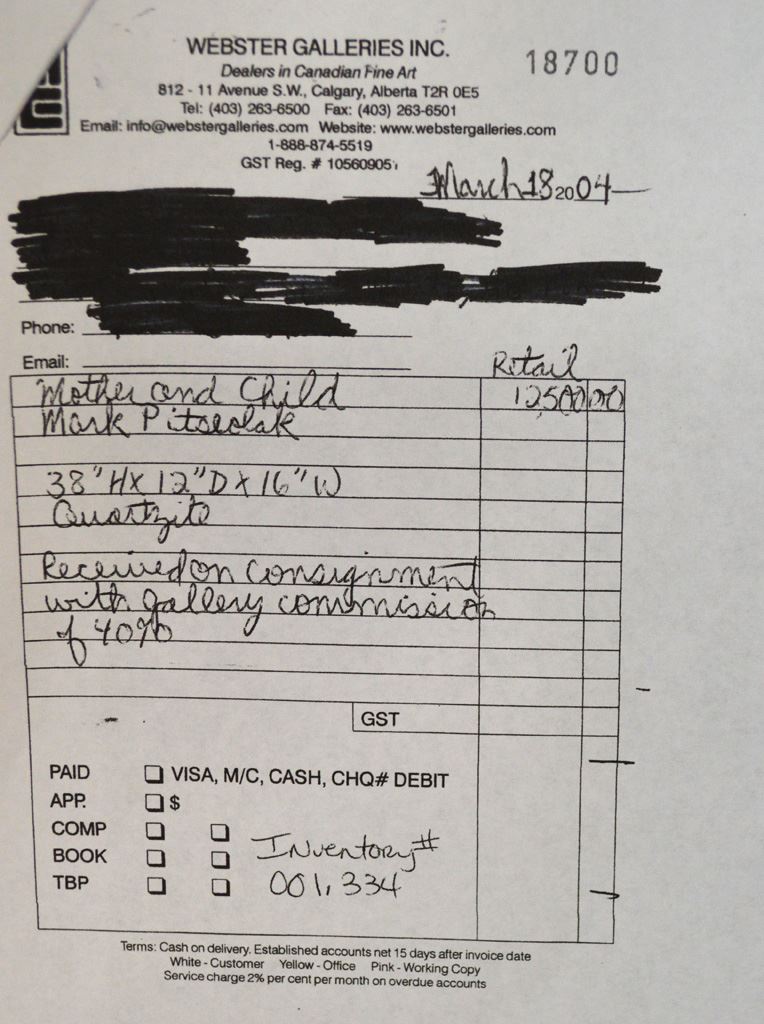 WEBSTER GALLERIES INC.
18700
Dealers in Canadian Fine Art
812 - 11 Avenue S.W., Calgary, Alberta T2R 0E5
Tel: (403) 263-6500 Fax: (403) 263-6501
Email: info@webstergalleries.com Website: www.webstergalleries.com
1-888-874-5519
GST Reg. # 10560905
March 18 2004
Phone:
Email:
Retail
Mother and Child 12500 00
Mark Pitseolak
38"H X 12"D X 16"W
Quartzite
Received on consignment
with gallery commission
of 40%
GST
PAID VISA, M/C, CASH, CHQ# DEBIT
APP. $
COMP
BOOK Inventory#
TBP 001,334
Terms: Cash on delivery. Established accounts net 15 days after invoice date
White - Customer Yellow - Office Pink - Working Copy
Service charge 2% per cent per month on overdue accounts